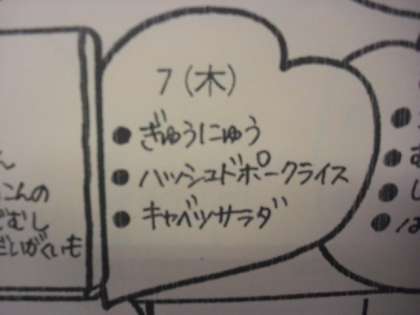 7(木)
●ぎゅうにゅう
●ハッシュドポークライス
●キャベツサラダ
こんの
むし
だいがくいも